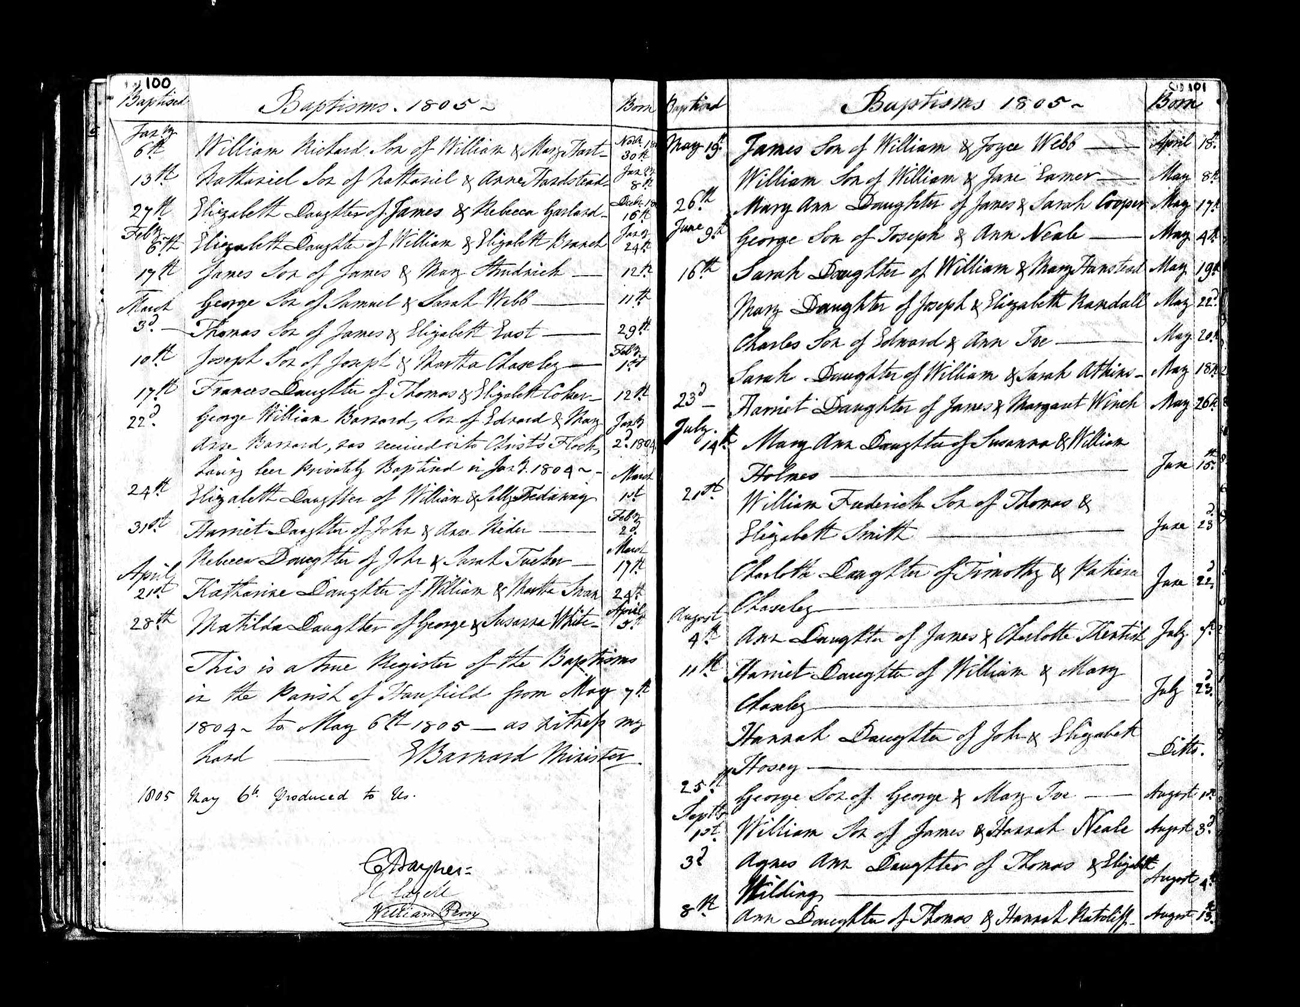 100
Baptised Baptisms. 1805 Born
Jany
6th William Richard Son of William & Mary Hart 30th
13th Nathaniel Son of Nathaniel & Anne Hardstead 8th
27th Elizabeth Daughter of James & Rebecca Garland 16th
Feby Jany
6th Elizabeth Daughter of William & Elizabeth Branch 24th
17th James Son of James & Mary 12th
George Son of Samuel & Sarah Webb 11th
March
3d Thomas Son of James & Elizabeth East 29th
Feby
10th Joseph Son of Joseph & Martha Chaseley 1st
17th Frances Daughter of Thomas & Elizabeth Coker 12th
22d George William Barnard, Son of Edward & Mary Jany
Ann Barnard, was received into Christs Flock, 2d 1804
having been Privately Baptized in Jany 1804
March
24th Elizabeth Daughter of William & Sally Treadaway 1st
Feby
31st Harriet Daughter of John & Ann Rider 2d
March
Rebecca Daughter of John & Sarah Tucker 17th
April
21st Katharine Daughter of William & Martha Swan 24th
April
28th Matilda Daughter of George & Susanna White 5th
This is a true Register of the Baptisms
in the Parish of Harefield from May 7th
1804 to May 6th 1805 as witness my
hand EBarnard Minister
1805 May 6th Produced to Us.
William Perry
101
Baptised Baptisms 1805 Born
May 19th James Son of William & Joyce Webb April 18th
William Son of William & Jane Eamer May 8th
26th Mary Ann Daughter of James & Sarah Cooper May 17th
June 9th George Son of Joseph & Ann Neale May 4th
16th Sarah Daughter of William & Mary Hanstead May 19th
Mary Daughter of Joseph & Elizabeth Randall May 22d
Charles Son of Edward & Ann Ive May 20th
Sarah Daughter of William & Sarah Atkins May 18th
23d Harriet Daughter of James & Margaret Winch May 26th
July
14th Mary Ann Daughter of Susanna & William
Holmes June 15th
21st William Frederick Son of Thomas &
Elizabeth Smith June 23d
Charlotte Daughter of Timothy & June 22d
Chaseley
August
4th Ann Daughter of James & Charlotte Kentish July 9th
11th Harriet Daughter of William & Mary
Chasley July 23d
Hannah Daughter of John & Elizabeth
Hosey Ditto.
25th George Son of George & Mary Ive August 1st
Septbr
1st William Son of James & Hannah Neale August 3d
3d Agnes Ann Daughter of Thomas & Elizabeth
Wilding August 4th
8th Ann Daughter of Thomas & Hannah Ratcliff August 13th